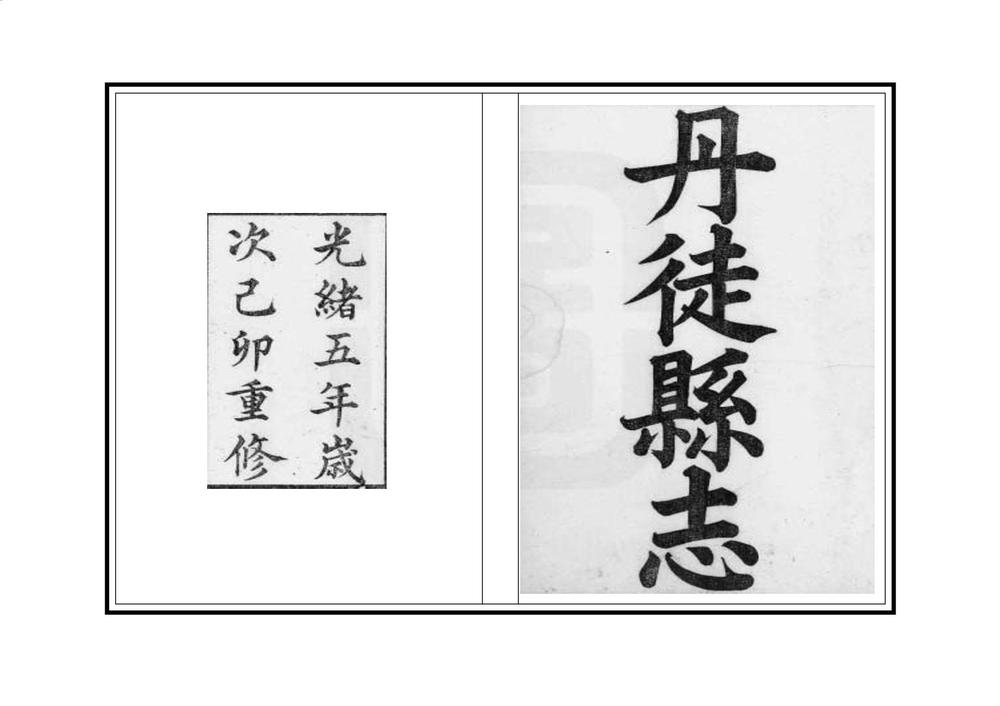 丹徒縣志
光緒五年歲
次己卯重修